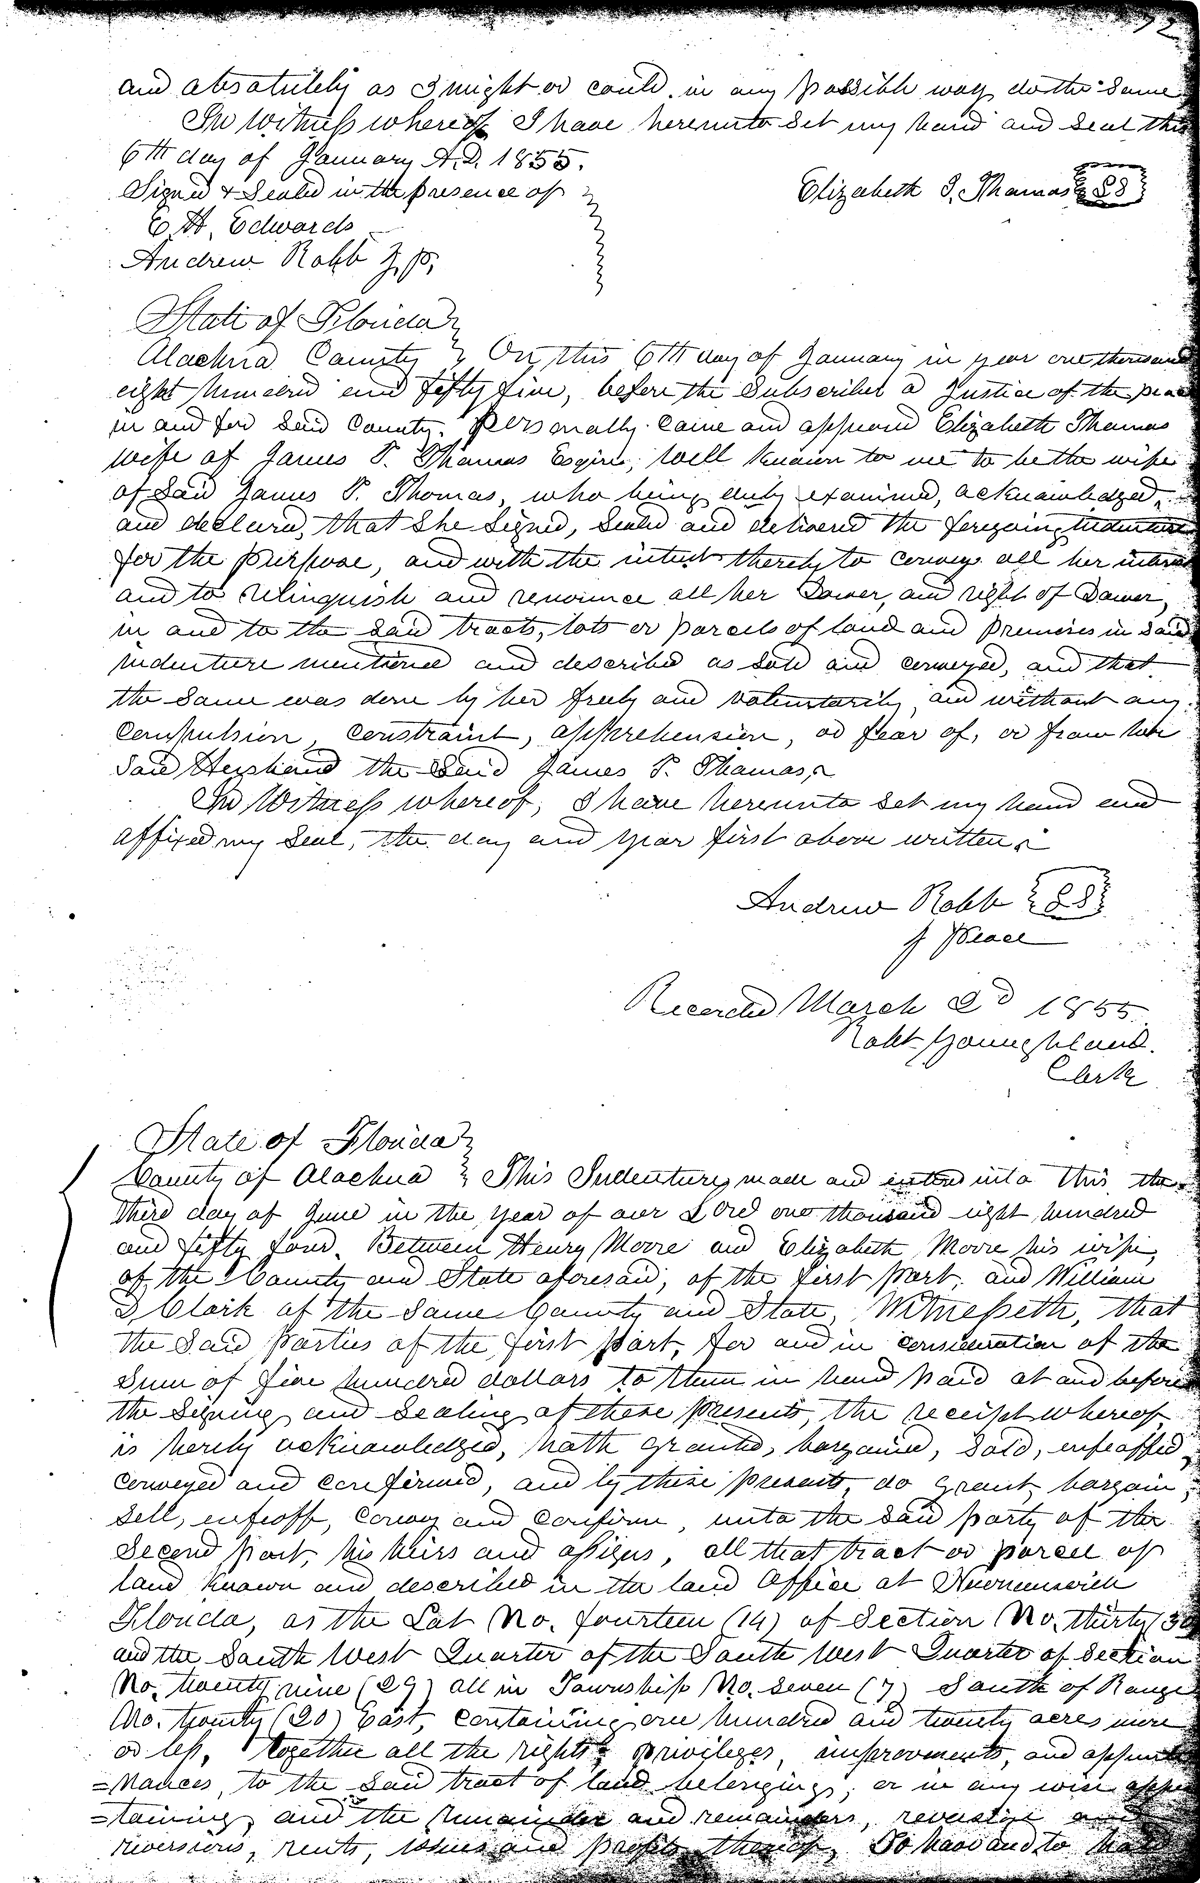 72
and absolutely as I might or could in any possible way do the same
In Witness whereof I have hereunto set my hand and seal this
6th day of January A.D. 1855.
Signed & Sealed in the presence of
Elizabeth I. Thomas LS
E. H. Edwards
Andrew Robb J. P.
State of Florida
Alachua County On this 6th day of January in year one thousand
eight hundred and fifty five, before the Subscriber a Justice of the peace
in and for said County. Personally came and appeared Elizabeth Thomas
wife of James T. Thomas Esqire, well known to me to be the wife
of said James T. Thomas, who being duly examined, acknowledged,
and declared, that she signed, sealed and delivered the foregoing Indenture
for the purpose, and with the intent thereby to convey all her interest
and to relinquish and renounce all her Dower, and right of Dower,
in and to the said tracts, lots or parcels of land and premises in said
indenture mentioned and described as sold and conveyed, and that
the same was done by her freely and voluntarily, and without any
compulsion, constraint, apprehension, or fear of, or from her
said Husband the said James T. Thomas,
In Witness whereof, I have hereunto set my hand and
affixed my Seal, the day and year first above written
Andrew Robb LS
J Peace
Recorded March 2d 1855.
Robt Younghland.
Clerk
State of Florida
County of Alachua This Indenture, made and entered into this the
third day of June in the year of our Lord one thousand eight hundred
and fifty four. Between Henry Moore and Elizabeth Moore his wife,
of the County and State aforesaid, of the first part, and William
I Clark of the same County and State, Witnesseth, that
the said parties of the first part, for and in consideration of the
sum of five hundred dollars to them in hand paid at and before
the signing and sealing of these presents, the receipt whereof,
is hereby acknowledged, hath granted, bargained, sold, enfeoffed,
conveyed and confirmed, and by these presents, do grant, bargain,
sell, enfeoff, convey and confirm, unto the said party of the
Second part, his heirs and assigns, all that tract or parcel of
land known and described in the land office at Newnansvich
Florida, as the Lot No. fourteen (14) of Section No. thirty (30
and the South West Quarter of the South West Quarter of Section
No. twenty nine (29) all in Township No. Seven (7) South of Range
No. twenty (20) East, containing one hundred and twenty acres more
or less, together all the rights, privileges, improvements, and appurte
=nances, to the said tract of land belonging, or in any wise apper
=taining, and the remainder and remainders, reversion and
riversions, rents, issues and profits thereof, To have and to hold